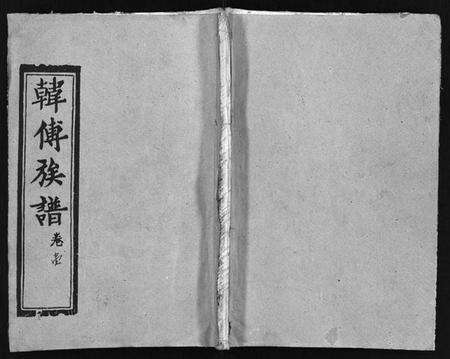 韓傅族譜
卷壹